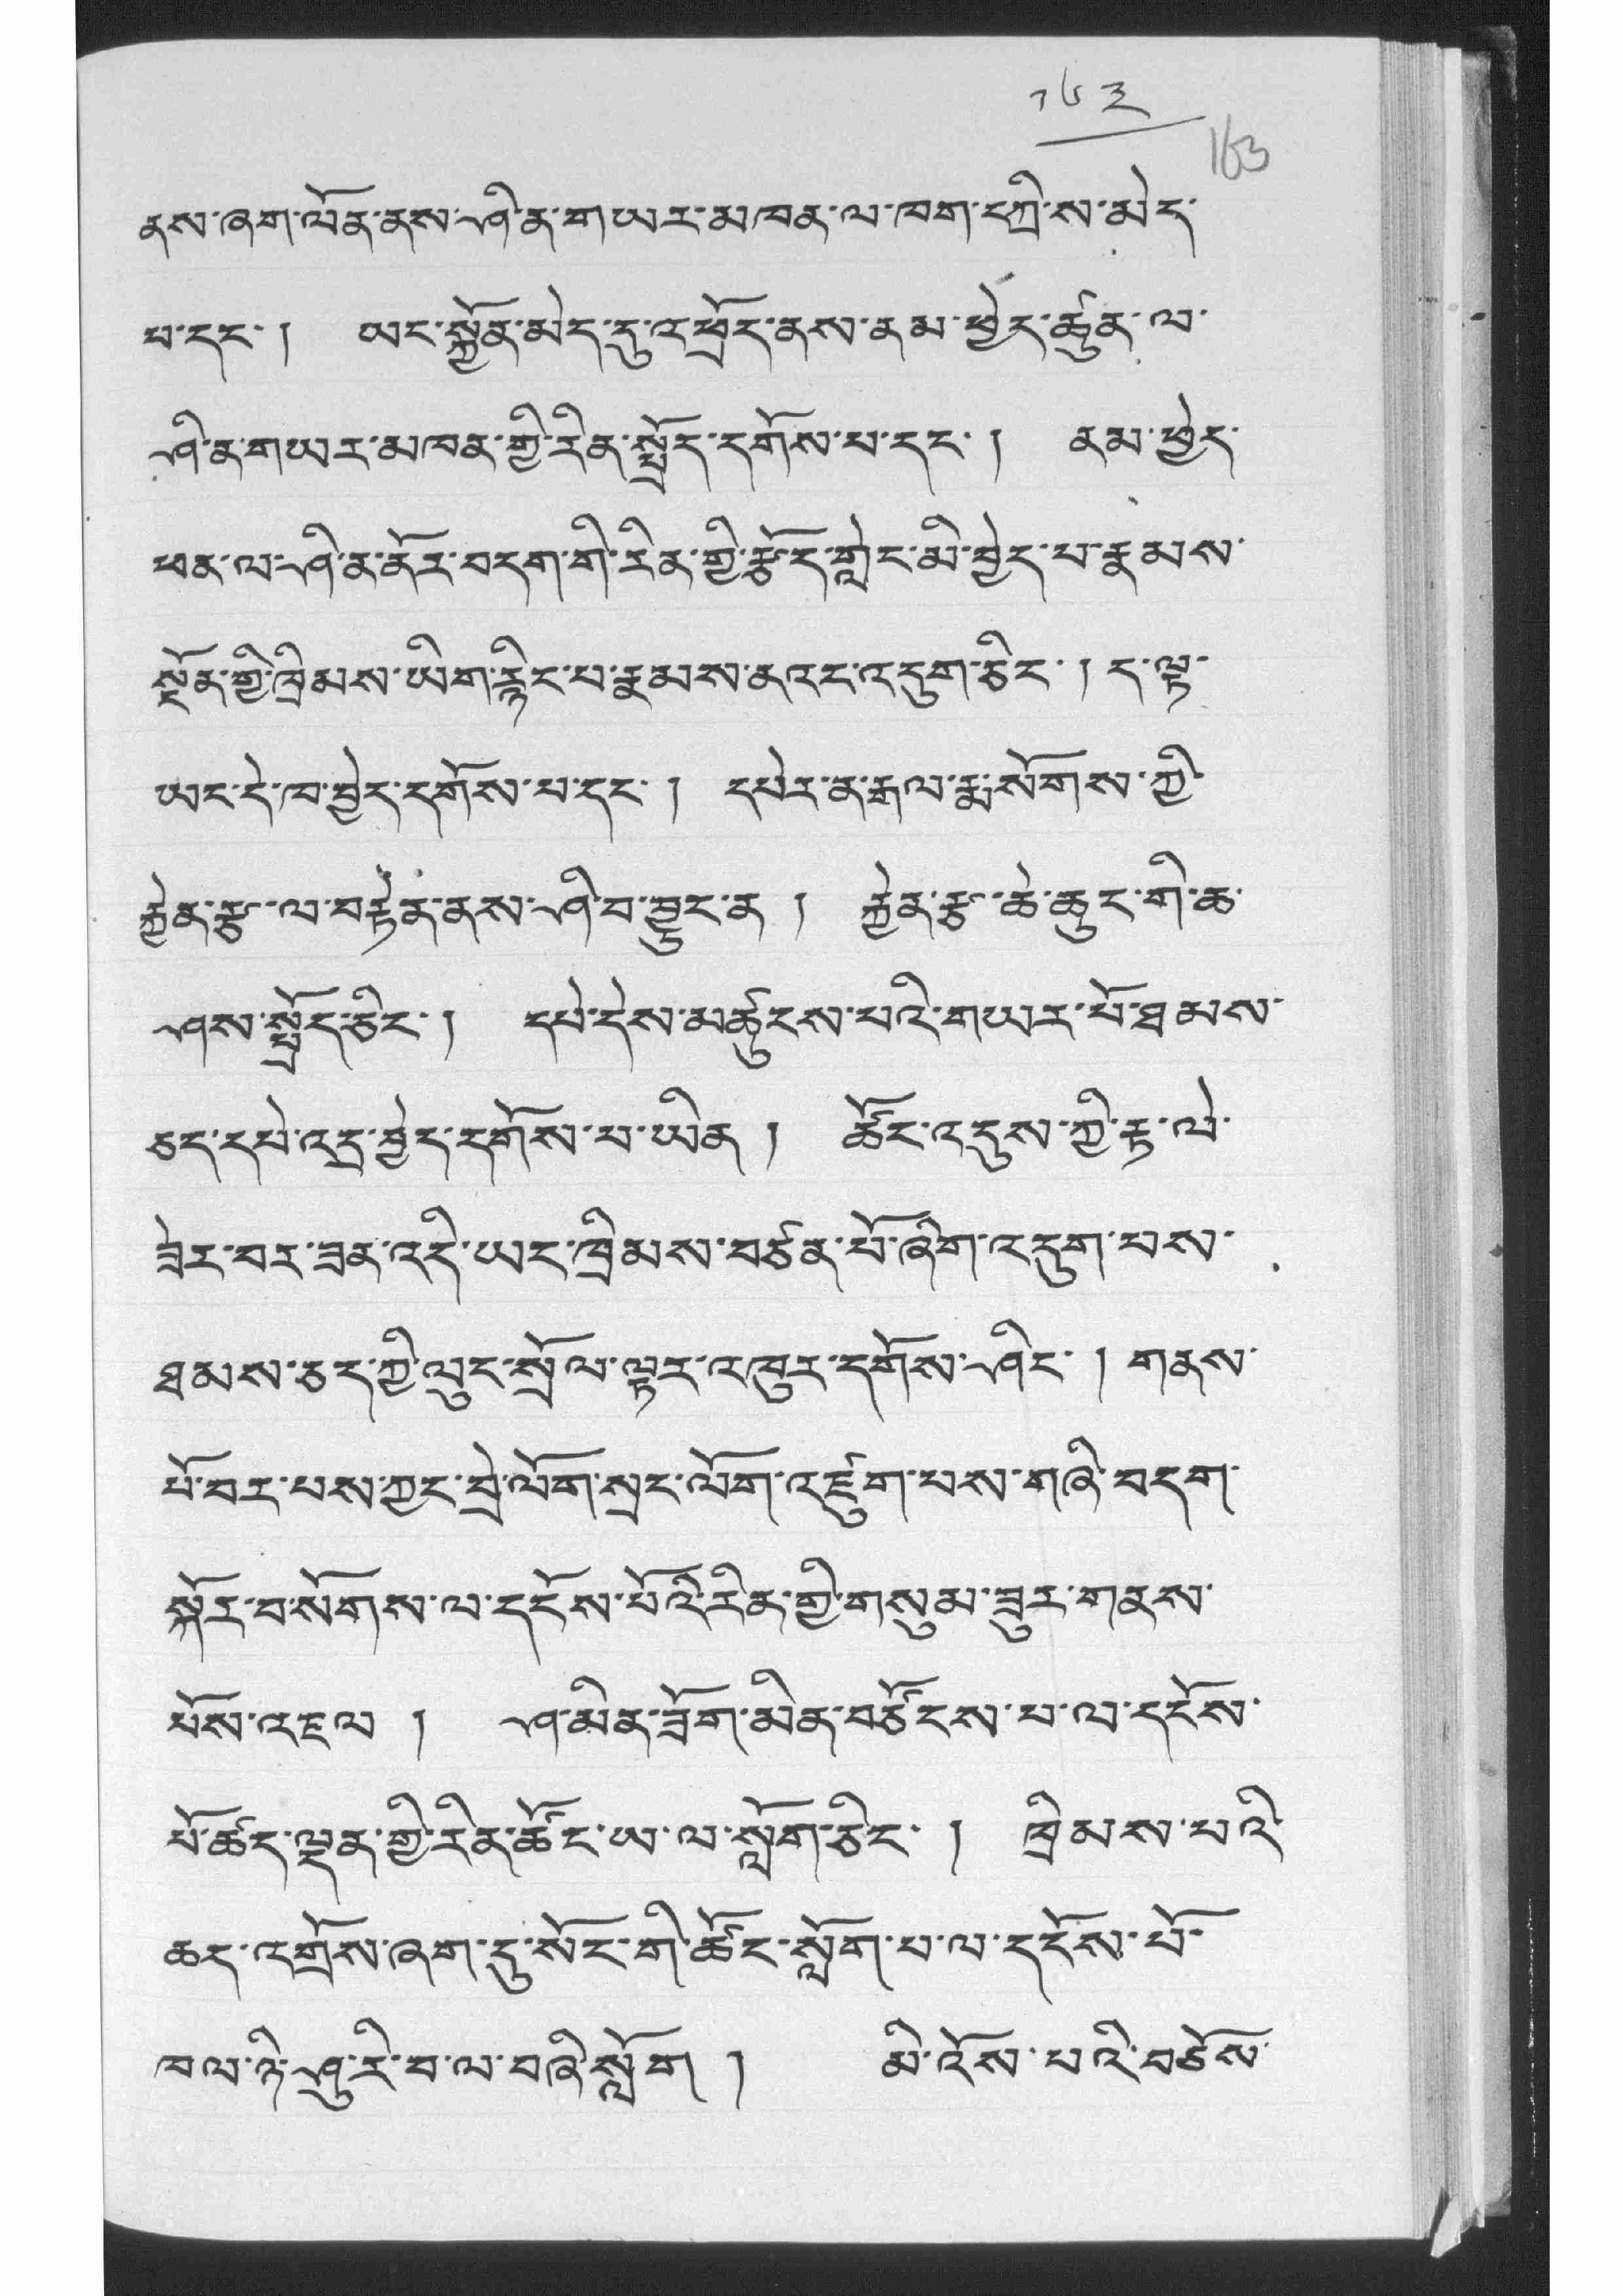 ༡༦༣
163
ནས་ཞག་ལོན་ནས་ཤི་ན་གཡར་མཁན་ལ་ཁག་དཀྲི་ས་མེད་
པ་དང་། ཡང་སྐྱོན་མེད་དུ་འཕྲོད་ནས་ནམ་ཕྱེད་ཚུན་ལ་
ཤི་ན་གཡར་མཁན་གྱི་རིན་སྤྲོད་དགོས་པ་དང་། ནམ་ཕྱེད་
ཕན་ལ་ཤི་ན་ནོར་བདག་གི་རིན་གྱི་རྩོད་གླེང་མི་བྱེད་པ་རྣམས་
སྔོན་གྱི་ཁྲིམས་ཡིག་རྙིང་པ་རྣམས་ན་འང་འདུག་ཅིང་། ད་ལྟ་
ཡང་དེ་ཁ་བྱེད་དགོས་པ་དང་། དཔེར་ན་རྒལ་རྨ་སོགས་ཀྱི་
རྐྱེན་རྩ་ལ་བརྟེན་ནས་ཤི་བ་བྱུང་ན། རྐྱེན་རྩ་ཆེ་ཆུང་གི་ཆ་
ཤས་སྤྲོད་ཅིང་། དཔེ་དེས་མཚུངས་པའི་གཡར་པོ་ཐམས་
ཅད་དཔེ་འདྲ་བྱེད་དགོས་པ་ཡིན། ཚོང་འདུས་ཀྱི་རྟ་ལེ་
ཟེར་བར་ཟན་འདི་ཡང་ཁྲིམས་བཙན་པོ་ཞིག་འདུག་པས་
ཐམས་ཅད་ཀྱི་ལུང་སྲོལ་ལྟར་འཁུར་དགོས་ཤིང་། གནས་
པོ་བར་པས་ཀྱང་བྲེ་ལོག་སྲང་ལོག་འཇུག་པས་གཞི་བདག་
སྐོར་བ་སོགས་ལ་དངོས་པོའི་རིན་གྱི་གསུམ་ཟུར་གནས་
པོས་འཇལ། ཤ་མིན་ཟོག་མིན་བཙོངས་པ་ལ་དངོས་
པོ་ཚད་ལྡན་གྱི་རིན་ཚོང་ཡ་ལ་སློག་ཅིང་། ཁྲིམས་པའི་
ཆད་འགྲོས་ཞག་དུ་སོང་གི་ཚོང་སློག་པ་ལ་དངོས་པོ་
ཁལ་ཉི་ཤུ་རི་བ་ལ་བཞི་སློག། མི་འོས་པའི་བཙོས་